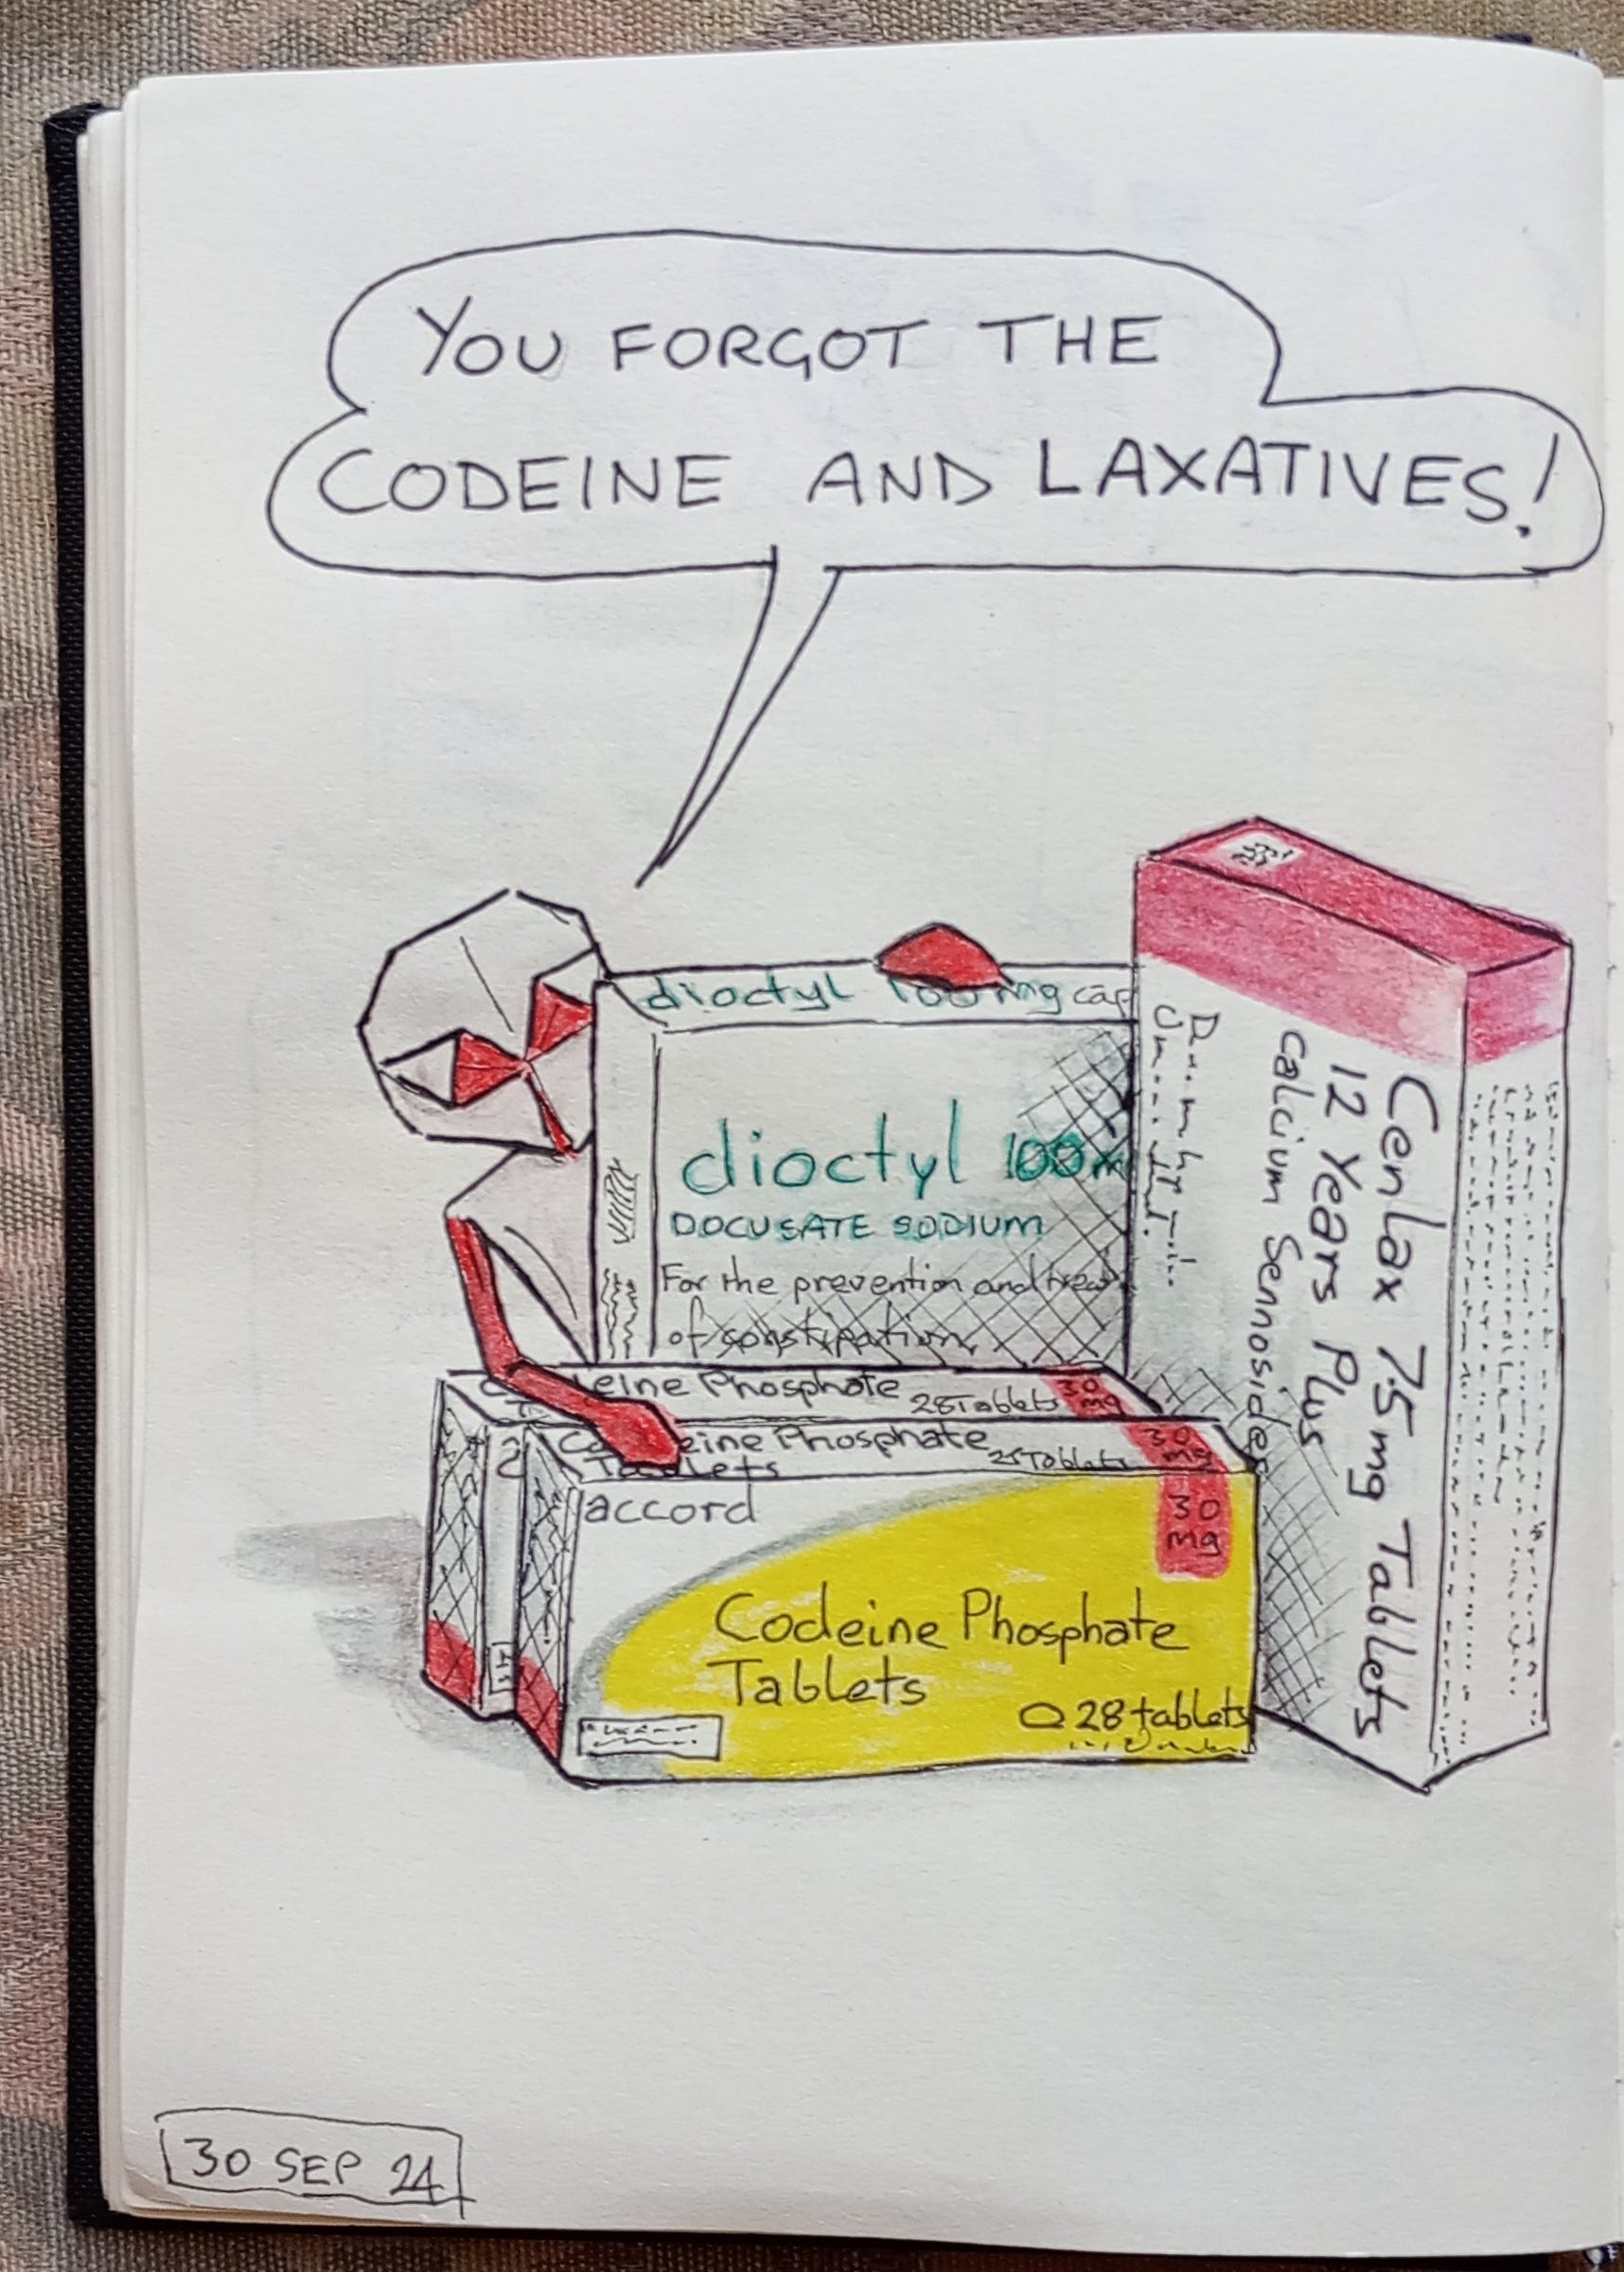 YOU FORGOT THE
CODEINE AND LAXATIVES!
dioctyl 100mg cap
dioctyl 100m
DOCUSATE SODIUM
For the prevention and treat
of constipation
Cenlax 7.5mg Tablets
12 Years Plus
Calcium Sennosides
eine Phosphate
28 Tablets
30
mg
eine Phosphate
Tablets
28 Tablets
30
mg
accord
30
mg
Codeine Phosphate
Tablets
28 tablets
30 SEP 24